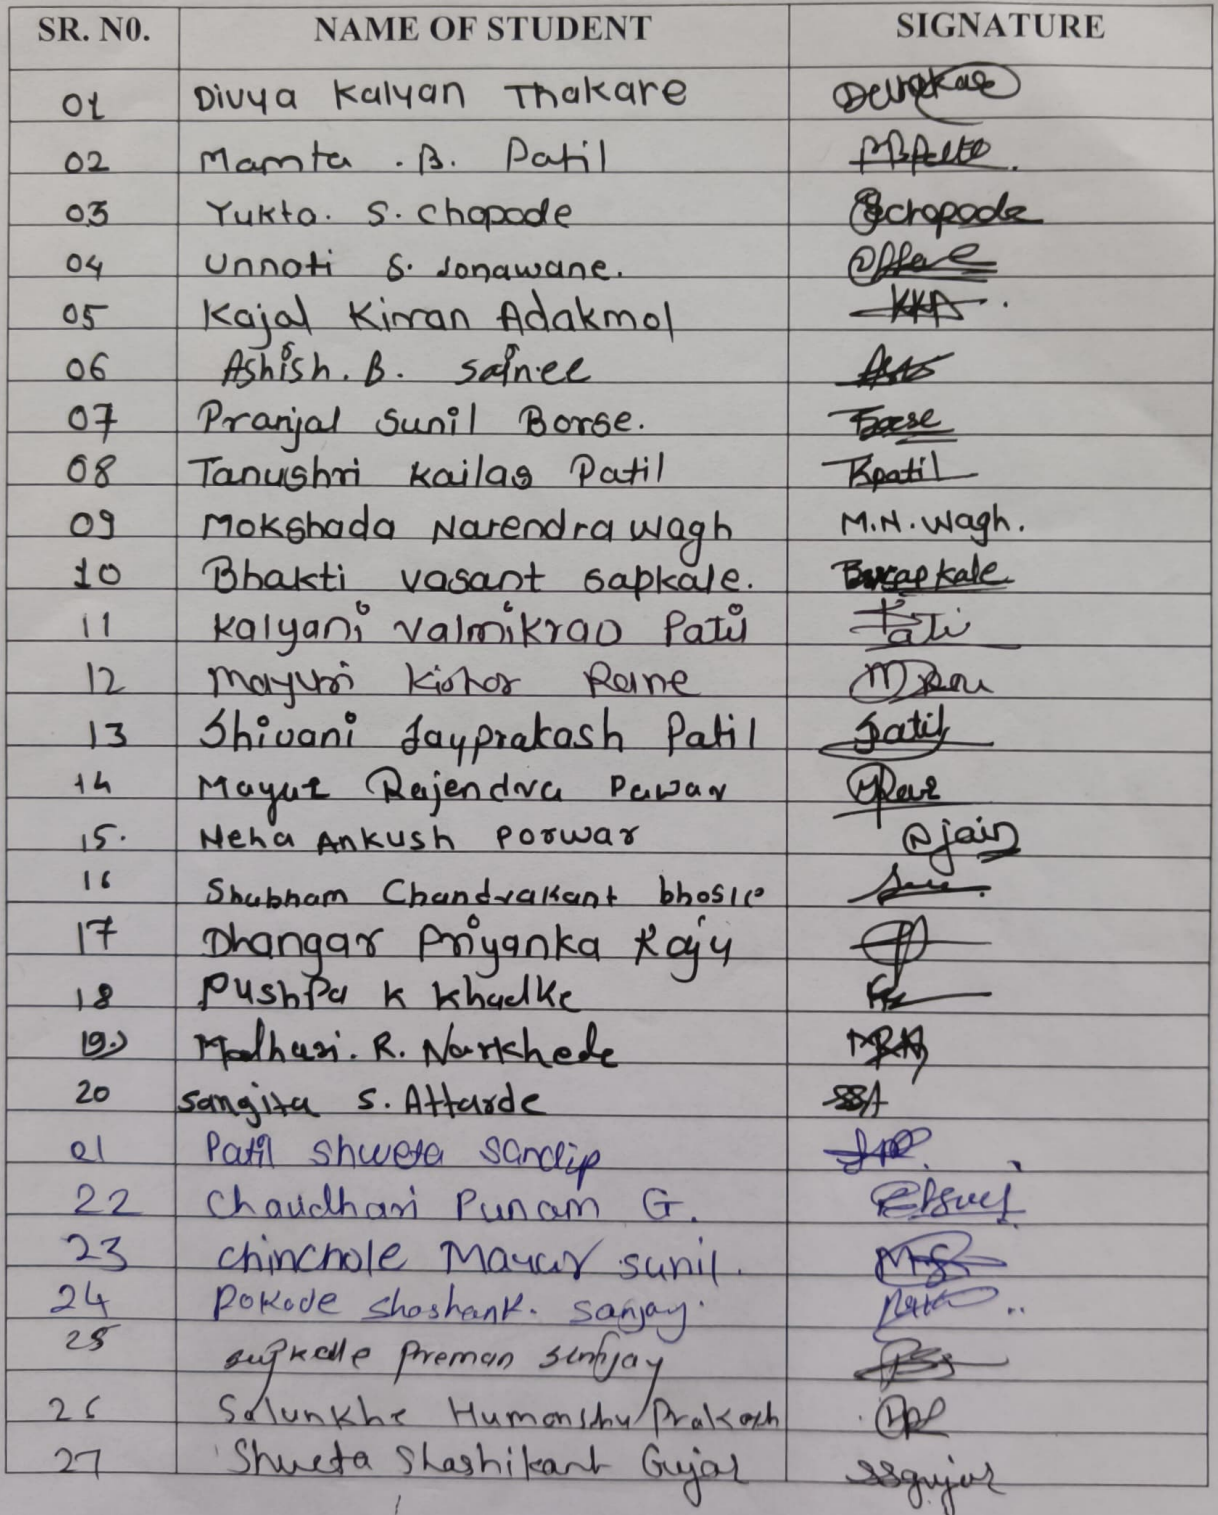 SR. N0. NAME OF STUDENT SIGNATURE
01 Divya Kalyan Thakare
02 Mamta . B. Patil
03 Yukta. S. Chopade
04 Unnati S. Sonawane.
05 Kajal Kirran Adakmol KKA
06 Ashish. B. Sainee
07 Pranjal Sunil Borse.
08 Tanushri Kailas Patil TKpatil
09 Mokshada Narendra Wagh M.N. Wagh.
10 Bhakti vasant sapkale. BVsapkale
11 Kalyani Valmikrao Patil
12 Mayuri Kishor Rane
13 Shivani Jayprakash Patil
14 Mayur Rajendra Pawar
15. Neha Ankush Porwar Njain
16 Shubham Chandrakant bhosle
17 Dhangar Priyanka Raju
18 Pushpa K Khadke
19.) Madhuri. R. Narkhede MRN
20 Sangita S. Attarde SSA
21 Patil Shweta Sandip
22 Chaudhari Punam G.
23 Chinchole Mayur Sunil.
24 Pokode Shashank. Sanjay.
25 Preman
26 Salunkhe Humanshu Prakash
27 Shweta Shashikant Gujar SSgujar